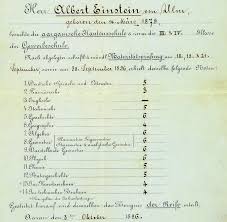 Herr Albert Einstein von Ulm,
geboren den 14. März 1879,
besuchte die aargauische Kantonsschule & zwar die III & IV. Klasse
der Gewerbeschule.
Nach abgelegter schriftl. & mündl. Maturitätsprüfung am 18., 19. & 21.
September, sowie am 30. September 1896, erhielt derselbe folgende Noten:
1. Deutsche Sprache und Litteratur 5
2. Französische 3
3. Englische —
4. Italienische 5
5. Geschichte 6
6. Geographie 4
7. Algebra 6
8. Geometrie 6
9. Darstellende Geometrie 6
10. Physik 6
11. Chemie 5
12. Naturgeschichte 5
13. Im Kunstzeichnen 4
14. Im technischen Zeichnen 4
Gestützt hierauf wird demselben das Zeugnis der Reife erteilt.
Aarau den 3ten Oktober 1896.